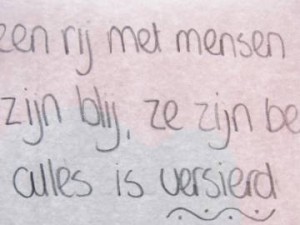 een rij met mensen
zijn blij, ze zijn be
alles is versierd